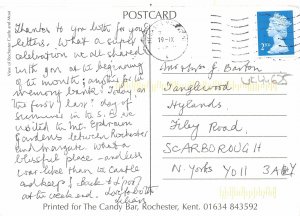 POSTCARD
View of Rochester Castle and River
Thanks to you both for your
letters. What a super
celebration we all shared
with you at the beginning
of the month; another for the
memory bank! Today is
the first & last day of
summer in the S. E &
visited the Mt. Ephraim
Gardens between Rochester
and Margate. What a
blissful place - and less
war-like than the Castle
and keep! Back to
at the weekend.
2ND
19 - IX
Mr & Mrs J Barton
Tanglewood
Hylands,
Filey Road,
SCARBOROUGH
N. Yorks YO11 3
Printed for The Candy Bar, Rochester, Kent. 01634 843592